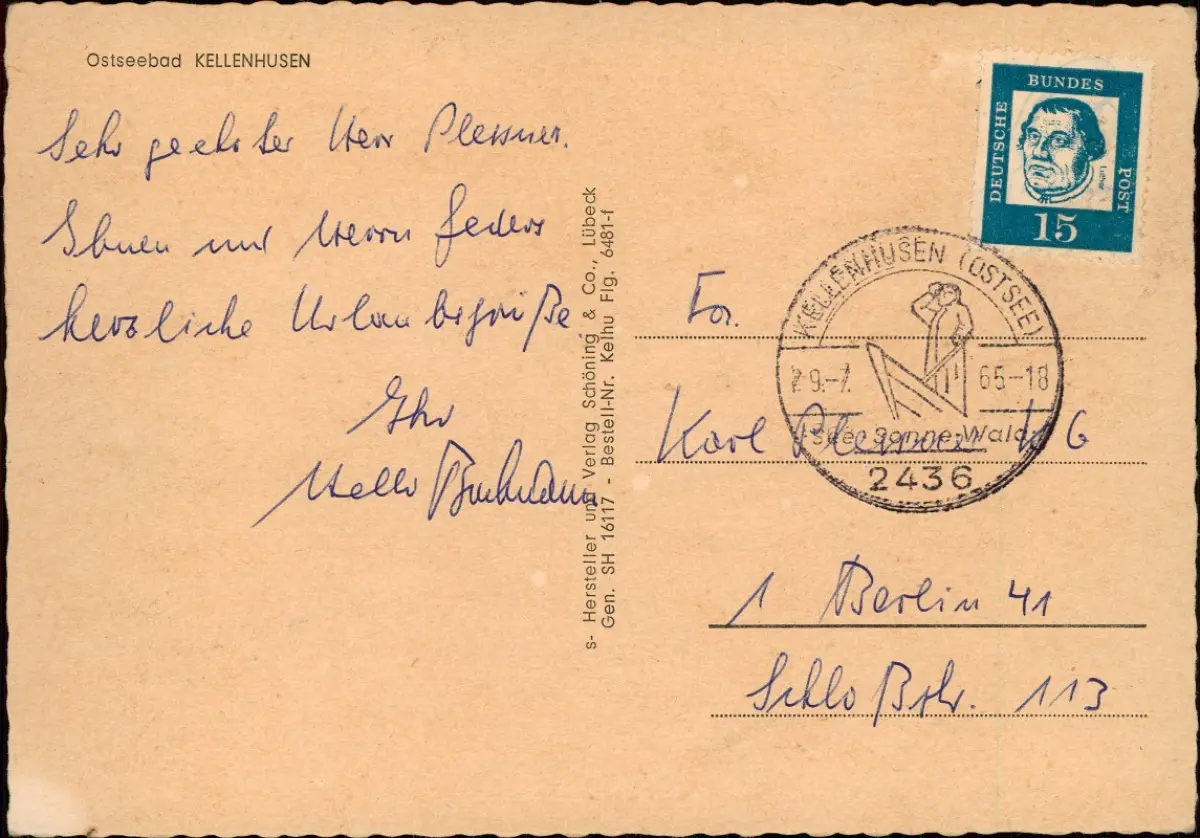 Ostseebad KELLENHUSEN
Sehr geehrter Herr Plessner.
Ihnen und Herrn Feders
herzliche Urlaubsgrüße
Ihr
s- Hersteller und Verlag Schöning & Co., Lübeck
Gen. SH 16117 - Bestell-Nr. Kelhu Flg. 6481-f
DEUTSCHE
BUNDES
POST
Luther
15
KELLENHUSEN (OSTSEE)
29.-7. 65-18
see-Sonne-Wald
2436
Fa.
Karl Plessner KG
1 Berlin 41
Schloßstr. 113